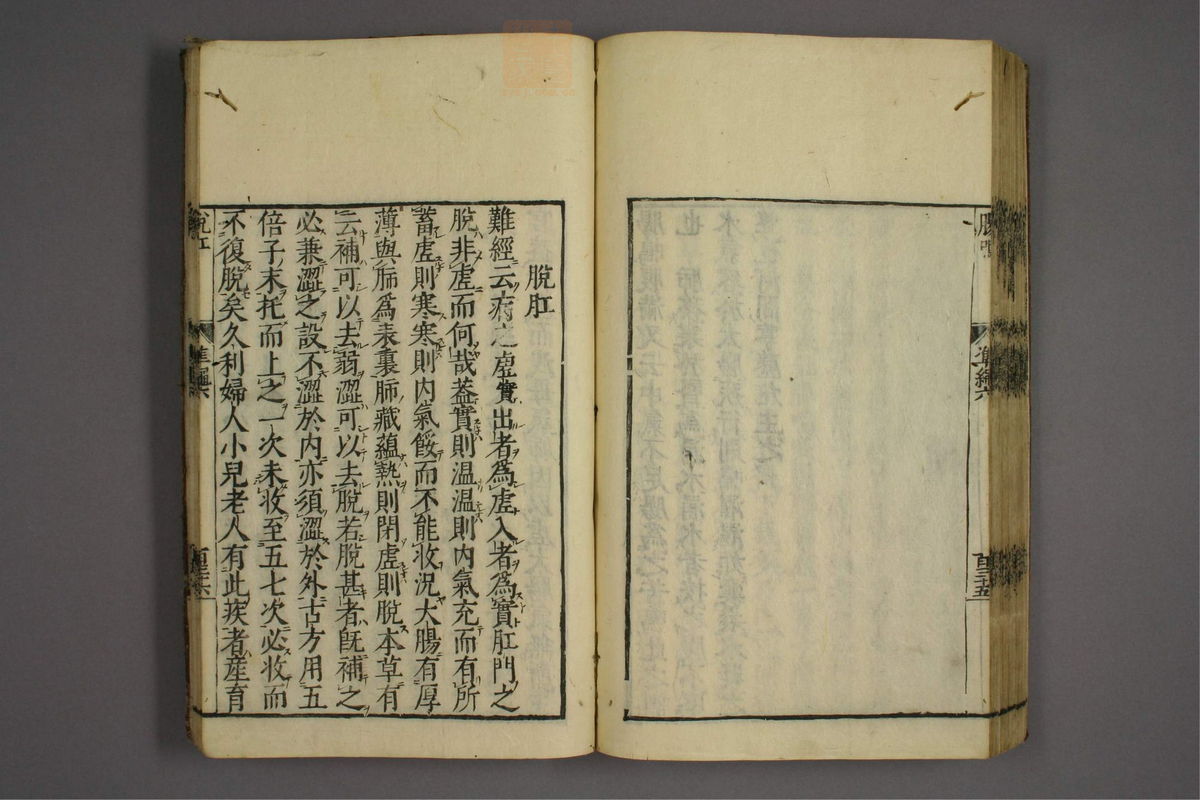 腸鳴
準繩六
百三十五
脫肛
難經云病之虛實出者為虛入者為實肛門之
脫非虛而何哉蓋實則溫溫則內氣充而有所
蓄虛則寒寒則內氣餒而不能收況大腸有厚
薄與肺為表裏肺藏蘊熱則閉虛則脫本草有
云補可以去弱澀可以去脫若脫甚者既補之
必兼澀之設不澀於內亦須澀於外古方用五
倍子末托而上之一次未收至五七次必收而
不復脫矣久利婦人小兒老人有此疾者產育
脫肛
準繩六